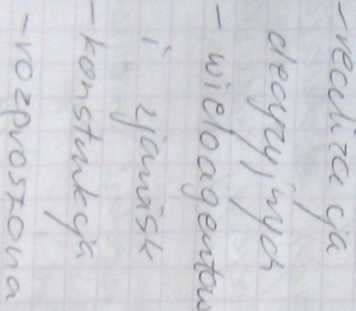 -realizacja
decyzyjnych
- wieloagentow
i zjawisk
-konstrukcja
-rozproszona